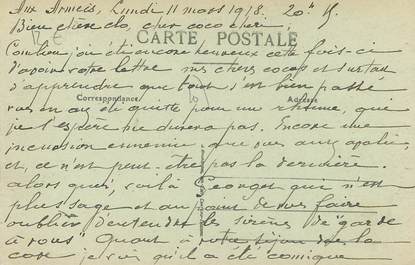 Aux Armées, Lundi 11 mars 1918. 20h 15
Bien chère clo, cher coco chéri.
CARTE POSTALE
Combien j'ai été encore heureux cette fois-ci
d'avoir votre lettre mes chers cocos et surtout
d'apprendre que tout s'est bien passé
Correspondance
Adresse
vous en avez été quitte pour une rhume, qui
je l'espère ne durera pas. Encore une
incursion ennemie, que vous avez
et, ce n'est peut-être pas la dernière.
alors quoi, voilà Georget qui n'est
plus sage et au point de vous faire
oublier d'entendre les sirènes de "garde
à vous" Quant à votre séjour de la
cave je vois qu'il a été comique